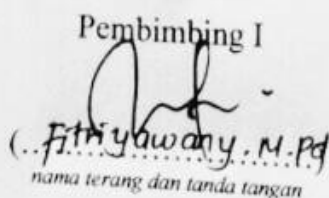 Pembimbing I
(..Fitriyawany.M.Pd)
nama terang dan tanda tangan